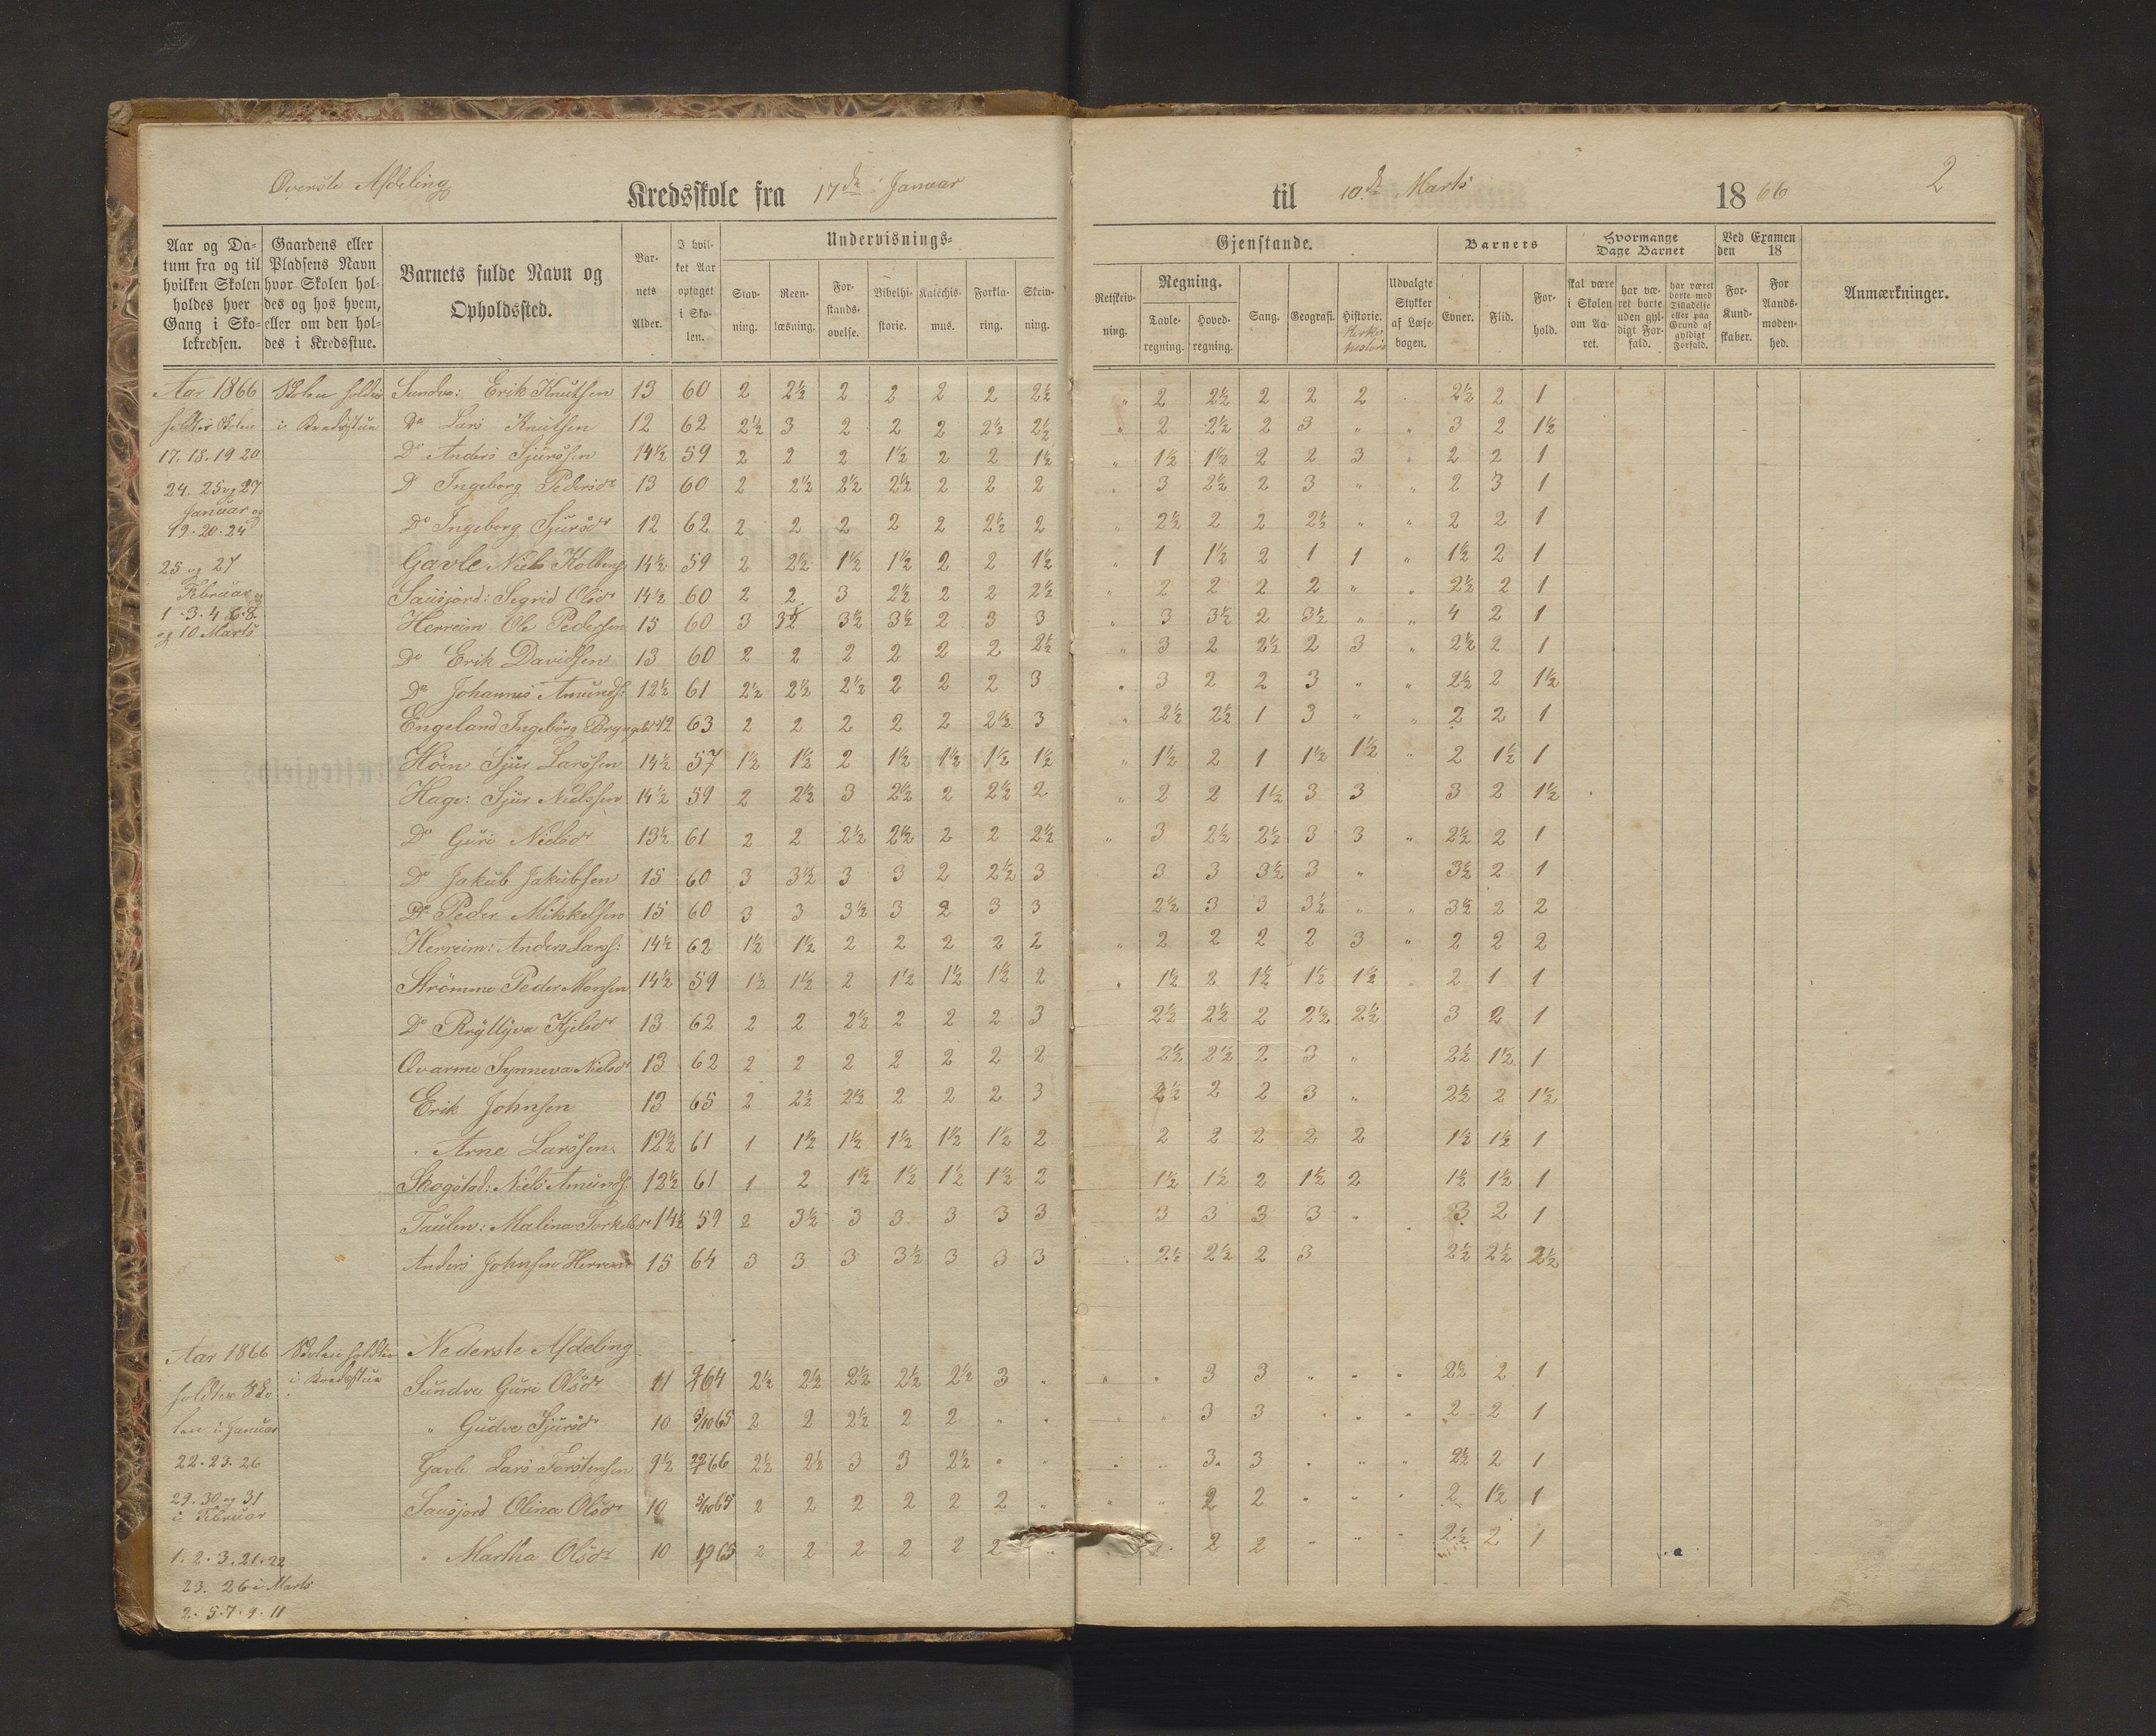 Øverste Afdeling
Kredsskole fra 17de Januar til 10de Marts 1866 2
Aar og Datum fra og til hvilken Skolen holdes hver Gang i Skolekredsen.
Gaardens eller Pladsens Navn hvor Skolen holdes og hos hvem, eller om den holdes i Kredsstue.
Barnets fulde Navn og Opholdssted.
Barnets Alder.
I hvilket Aar optaget i Skolen.
Undervisnings-Gjenstande.
Stavning. Reenlæsning. Forstandsøvelse. Bibelhistorie. Katechismus. Forklaring. Skrivning.
Retskrivning. Regning. Tavleregning. Hovedregning. Sang. Geografi. Historie. Kirkehistorie Udvalgte Stykker af Læsebogen.
Barnets Evner. Flid. Forhold.
Hvormange Dage Barnet skal være i Skolen om Aaret. har været borte uden gyldigt Forfald. har været borte med Tilladelse eller paa Grund af gyldigt Forfald.
Ved Examen den 18 Forkundskaber. For Aandsmodenhed.
Anmærkninger.
Aar 1866 Skolen holdes Sundve: Erik Knutsen 13 60 2 2½ 2 2 2 2 2½ " 2 2½ 2 2 2 . 2½ 2 1
holdtes Skolen i Kredsstue Do Lars Knutsen 12 62 2½ 3 2 2 2 2½ 2½ " 2 2½ 2 3 " " 3 2 1½
17. 18. 19 20 Do Anders Sjurssen 14½ 59 2 2 2 1½ 2 2 1½ " 1½ 1½ 2 2 3 . 2 2 1
24. 25 og 27 D Ingeborg Pedersdr 13 60 2 2½ 2½ 2½ 2 2 2 " 3 2½ 2 3 " " 2 3 1
Januar og
19. 20. 24 Do Ingeborg Sjursdr 12 62 2 2 2 2 2 2½ 2 " 2½ 2 2 2½ " " 2 2 1
25 og 27 Gavle Niels Kolbens 14½ 59 2 2½ 1½ 1½ 2 2 1½ " 1 1½ 2 1 1 " 1½ 2 1
Februar og Sausjord: Sigrid Olsdr 14½ 60 2 2 3 2½ 2 2 2½ " 2 2 2 2 " " 2½ 2 1
1. 3. 4. 6. 8. Herreim Ole Pedersen 15 60 3 3½ 3½ 3½ 2 3 3 " 3 3½ 2 3½ " " 4 2 1
og 10 Marts
Do Erik Davidsen 13 60 2 2 2 2 2 2 2½ " 3 2 2½ 2 3 " 2½ 2 1
Do Johannes Amunds: 12½ 61 2½ 2½ 2½ 2 2 2 3 " 3 2 2 3 " " 2½ 2 1½
Engeland Ingeborg Bryngelsdr 12 63 2 2 2 2 2 2½ 3 " 2½ 2½ 1 3 " " 2 2 1
Höen Sjur Larssen 14½ 57 1½ 1½ 2 1½ 1½ 1½ 1½ " 1½ 2 1 1½ 1½ " 2 1½ 1
Hage: Sjur Nielssen 14½ 59 2 2½ 3 2½ 2 2½ 2 " 2 2 1½ 3 3 3 2 1½
Do Guri Nielsdr 13½ 61 2 2 2½ 2½ 2 2 2½ " 3 2½ 2½ 3 3 " 2½ 2 1
Do Jakub Jakubsen 15 60 3 3½ 3 3 2 2½ 3 3 3 3½ 3 " 3½ 2 1
Do Peder Mikkelsen 15 60 3 3 3½ 3 2 3 3 2½ 3 3 3½ " " 3½ 2 2
Herreim: Anders Larss: 14½ 62 1½ 1½ 2 2 2 2 2 " 2 2 2 2 3 " 2 2 2
Strömme Peder Monsen 14½ 59 1½ 1½ 2 1½ 1½ 1½ 2 " 1½ 2 1½ 1½ 1½ . 2 1 1
Do Brÿllÿva Kjelsdr 13 62 2 2 2½ 2 2 2 3 2½ 2½ 2 2½ 2½ 3 2 1
Qvarme Synneva Nielsdr 13 62 2 2 2 2 2 2 2 2½ 2½ 2 3 " 2½ 1½ 1
Erik Johnsen 13 65 2 2½ 2½ 2 2 2 3 2½ 2 2 3 " 2½ 2 1½
Arne Larssen 12½ 61 1 1½ 1½ 1½ 1½ 1½ 2 2 2 2 2 2 1½ 1½ 1
Skogstad: Niels Amunds. 12½ 61 1 2 1½ 1½ 1½ 1½ 2 1½ 1½ 2 1½ 2 1½ 1½ 1
Taulen: Malina Torkelsdr 14½ 59 2 3½ 3 3 3 3 3 3 3 3 3 " 3 2 1
Anders Johnsen Herreim 15 64 3 3 3 3½ 3 3 3 2½ 2½ 2 3 2½ 2½ 2½
Aar 1866 Skolen holdtes Nederste Afdeling
holdtes Sko i Kredsstue Sundve Guri Olsdr 11 64 2½ 2½ 2½ 2½ 2½ 3 " " " 3 3 " " " 2½ 2 1
len i Januar " Gudve Sjursdr 10 3/10 65 2 2 2½ 2 2 " " 3 3 " " " 2 2 1
22. 23. 26 Gavle Lars Torstensen 9½ 66 2½ 2½ 3 3 2½ " " 3 3 " " " 2½ 2 1
29. 30 og 31 Sausjord Olina Olsdr 10 3/10 65 2 2 2 2 2 2 " " " 2 2 " " " 2 1½ 1
i Februar
1. 2. 3. 21. 22 " Martha Olsdr 10 65 2 2 2 2 2 2 " 2 2 " " " 2½ 2 1
23. 26 i Marts
2. 5. 7. 9. 11